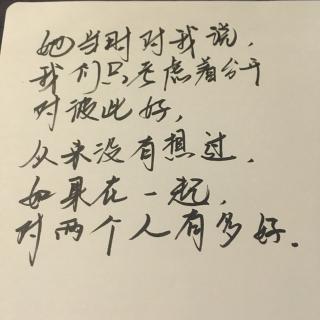 她当时对我说,
我们只考虑着分开
对彼此好,
从来没有想过,
如果在一起,
对两个人有多好.